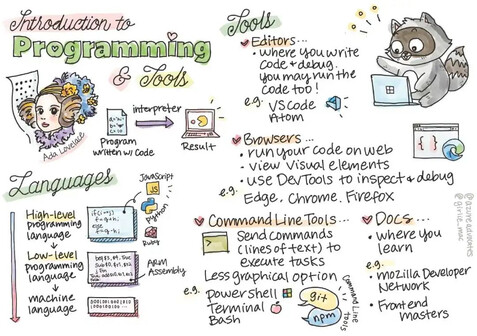 Introduction to
Programming
& Tools
Ada Lovelace
interpreter
Program
written w/ Code
Result
Languages
High-level
programming
language
Low-level
programming
language
machine
language
JavaScript
JS
Python
Ruby
ARM
Assembly
Tools
Editors...
• where you write
code & debug.
You may run the
code too!
e.g.
VS Code
Atom
Browsers...
• run your code on web
• view visual elements
• use DevTools to inspect & debug
e.g.
Edge, Chrome, Firefox
Command Line Tools...
Send commands
(lines of text) to
execute tasks
Less graphical option
e.g.
Powershell
Terminal
Bash
git
npm
Command Line
Tools
Docs...
• where you
learn
e.g.
• mozilla Developer
Network
• Frontend
masters
@azureadvocates
@girlie_mac